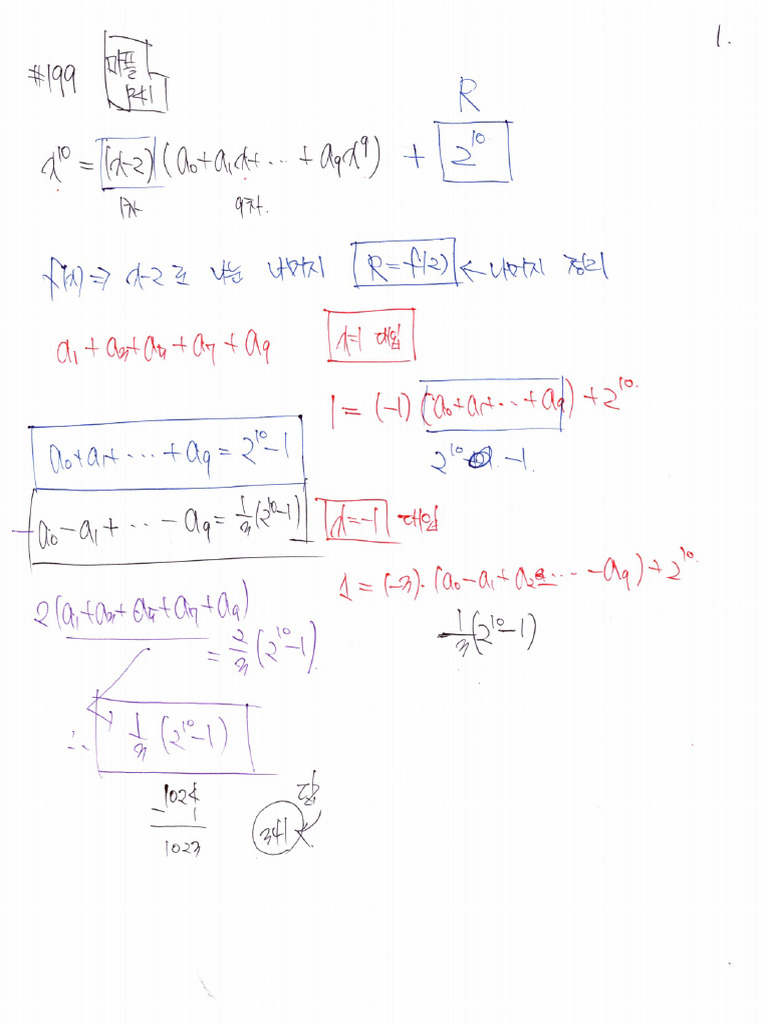 1.
#199 마플 P41
R
x¹⁰ = (x-2)(a₀+a₁x+⋯+a₉x⁹) + 2¹⁰
1차 9차.
f(x) ⇒ x-2로 나눈 나머지 R=f(2) ← 나머지 정리
a₁+a₃+a₅+a₇+a₉ x=1 대입
1 = (-1)(a₀+a₁+⋯+a₉)+2¹⁰.
a₀+a₁+⋯+a₉ = 2¹⁰-1
2¹⁰-1.
- a₀-a₁+⋯-a₉ = 1/3(2¹⁰-1)
x=-1 대입
1 = (-3)·(a₀-a₁+a₂-⋯-a₉)+2¹⁰.
1/3(2¹⁰-1)
2(a₁+a₃+a₅+a₇+a₉)
= 2/3(2¹⁰-1).
∴ 1/3(2¹⁰-1)
1024
- 1
1023
341 답